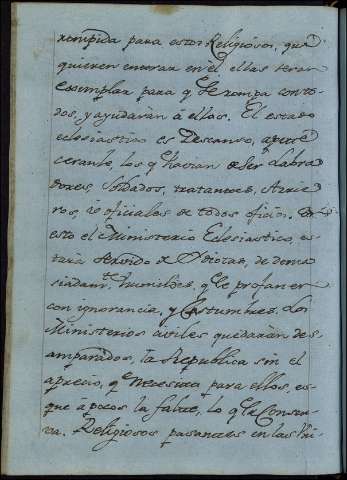 rompida para estos Religiosos, que
quieren entrar en el ellas seran
exemplar para q.e se rompa con to-
dos, y ayudarán á ellos. El estado
eclesiastico es Descanso, apure
cerante, los q.e havian de ser Labra
dores, Soldados, tratantes, Arrie
ros, i oficiales de todos oficios. Con
esto el Ministerio Eclesiastico, es-
tará lleno de Idiotas, de dema
siadam.te humildes, q.e le profanen
con ignorancia, y costumbres. Los
Ministerios civiles quedarán des
amparados, la Republica sin el
aprecio, q.e necesita para ellos, es-
que á pocos la falte, lo q.e la Conser-
va. Religiosos pasantes en las Uni-